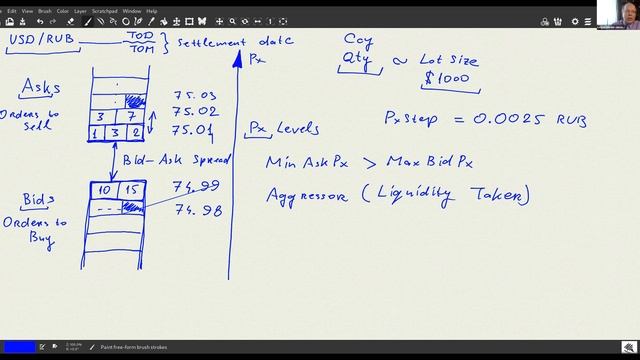 Edit View Layer Brush Color Layer Tools Help
Scratchpad
USD/RUB TOD TOM } Settlement date
Px
Ccy
Qty ~ Lot Size
$1000
Asks
Orders to Sell
75.03
3 7 75.02
1 3 2 75.01
Px Levels
PxStep = 0.0025 RUB
Bid-Ask Spread
Min Ask Px > Max Bid Px
Bids
Orders to Buy
10 15 74.99
74.98
Aggressor (Liquidity Taker)
Paint free-form brush strokes